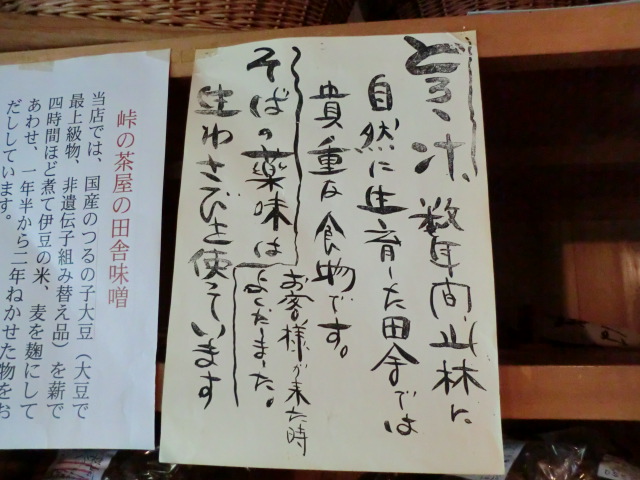 数年間山林に
自然に生育した田舎では
貴重な食物です。
お客様が来た時
よくだました。
そばの薬味は
生わさびを使っています
峠の茶屋の田舎味噌
当店では、国産のつるの子大豆（大豆で
最上級物、非遺伝子組み替え品）を薪で
四時間ほど煮て伊豆の米、麦を麹にして
あわせ、一年半から二年ねかせた物をお
だししています。